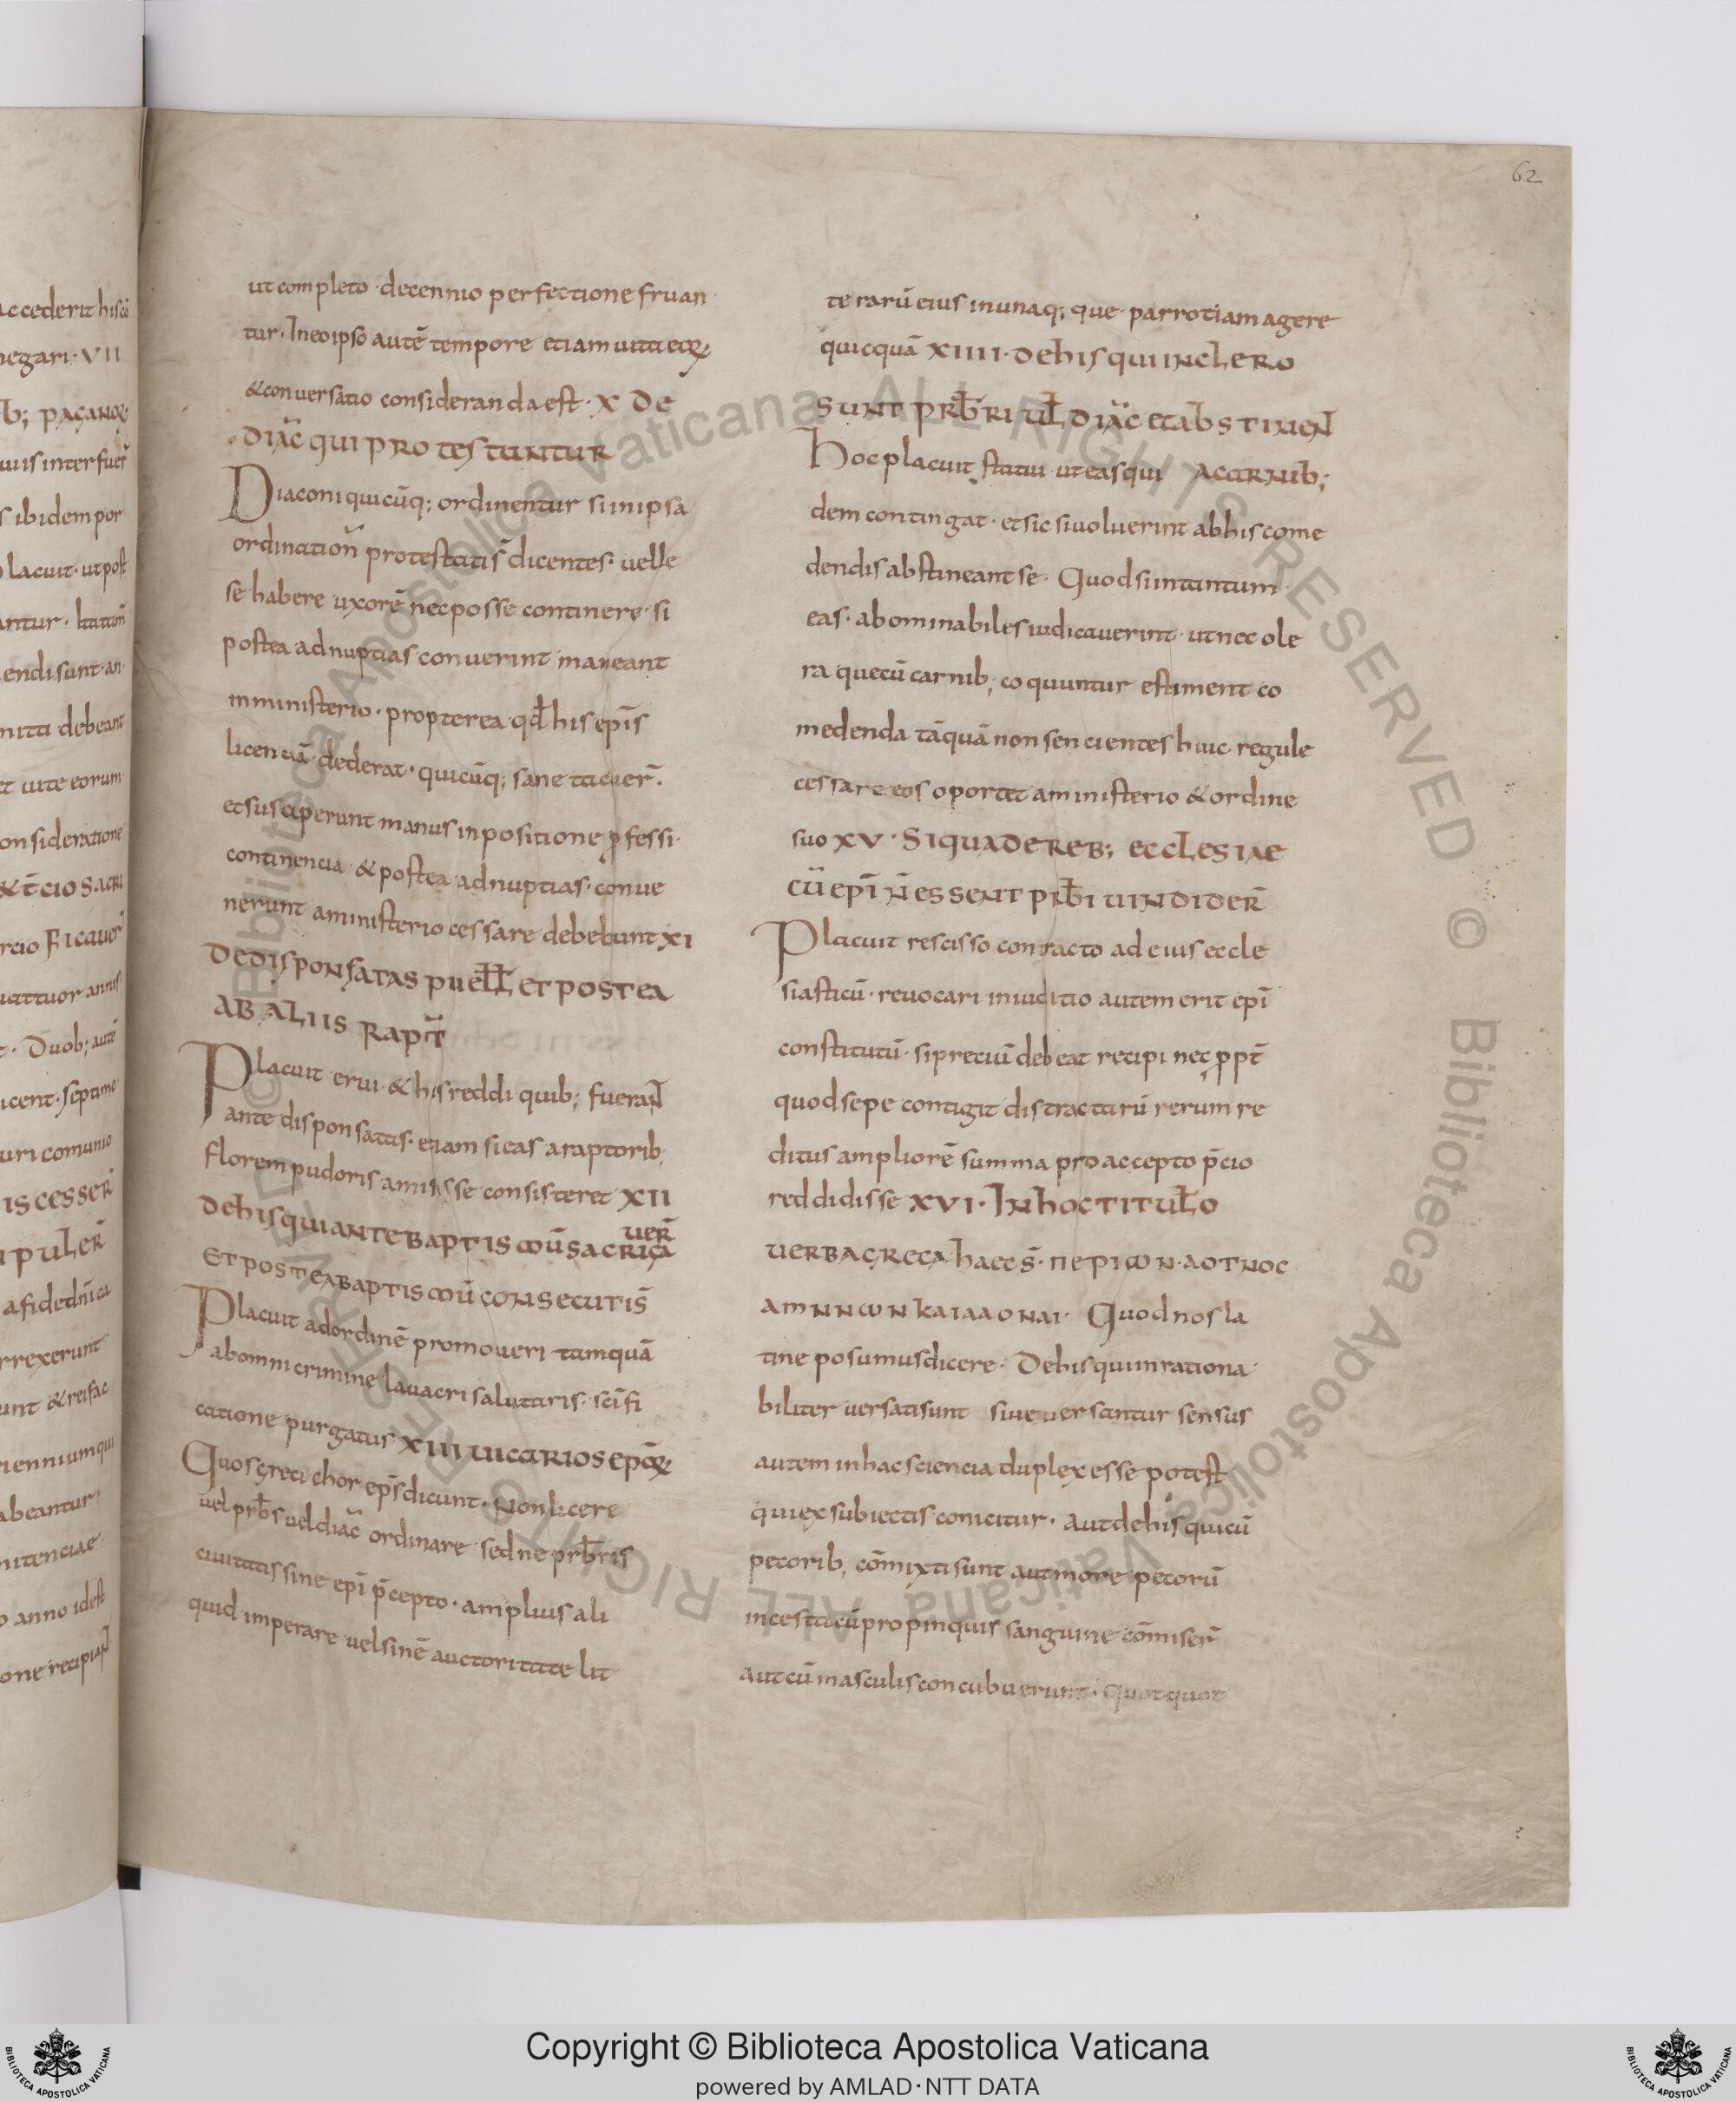 62
ut completo · decennio perfectione fruan
tur · In eo ipso autē tempore etiam uita eoꝝ
& conuersatio consideranda est · X DE
DIAC̄ QUI PROTESTANTUR
Diaconi quicūq; ordinentur si in ipsa
ordination̄ protestatis̄ dicentes · uelle
se habere uxorē nec posse continere · si
postea ad nuptias conuerint maneant
in ministerio · propterea qd̄ his ep̄is
licenciā dederat · quicūq; sane tacuer̄ ·
et susceperunt manus inpositione ꝓfessi ·
continencia & postea ad nuptias · conue
nerunt a ministerio cessare debebunt XI
DE DISPONSATAS PUELL̄ ET POSTEA
AB ALIIS RAPT̄
Placuit erui & his reddi quib; fueran̄
ante disponsatas · etiam si eas a raptorib;
florem pudoris amisisse consisteret XII
DE HIS QUI ANTE BAPTISMŪ SACRIFICA
UER̄
ET POSTEA BAPTISMŪ CONSECUTIS̄
Placuit ad ordinē promoueri tamquā
ab omni crimine lauacri salutaris · sc̄ifi
catione purgatus XIII UICARIOS EPŌꝜ
Quos greci chor ep̄s dicunt · Non licere
uel prb̄s uel diac̄ ordinare sed ne prb̄ris
ciuitatis sine ep̄i p̄cepto · amplius ali
quid imperare uel sinē auctoritate lit
terarū eius in unaq;que parrotiam agere
quicquā XIIII · DE HIS QUI IN CLERO
SUNT PRB̄RI UL̄ DIAC̄ ET ABSTINEN̄
Hoc placuit statui ut eas qui A CARNIB;
dem contingat · et sic si uoluerint ab his come
dendis abstineant se · Quod si intantum
eas · abominabiles iudicauerint ut nec ole
ra que cū carnib; coquuntur estiment co
medenda tāquā non sencientes huic regule
cessare eos oportet a ministerio & ordine
suo XV · SI QUA DE REB; ECCLESIAE
CŪ EPĪ N̄ ESSENT PRB̄I UINDIDER̄
Placuit rescisso contracto ad eius eccle
siasticū · reuocari in iuditio autem erit ep̄i
constitutū · si preciū debeat recipi nec ꝓpt̄
quod sepe contigit distractarū rerum re
ditus ampliorē summa pro accepto p̄cio
reddidisse XVI · IN HOC TITUL̄O
UERBA GRECA HAEC S̄ · ΠΕΡΙ ωΝ · ΑΟΤΝΟC
ΑΜΝΝωΝ ΚΑΙΑΑΟΝΑΙ · Quod nos la
tine posumus dicere · De his qui inrationa
biliter uersati sunt siue uersantur sensus
autem in hac sciencia duplex esse potest
qui ex subiectis conicitur · aut de his qui cū
pecorib; cōmixti sunt aut more pecorū
incesta cū propinquis sanguine cōmiser̄
aut cū masculis concubuerunt · Quotquot
Copyright © Biblioteca Apostolica Vaticana
powered by AMLAD·NTT DATA